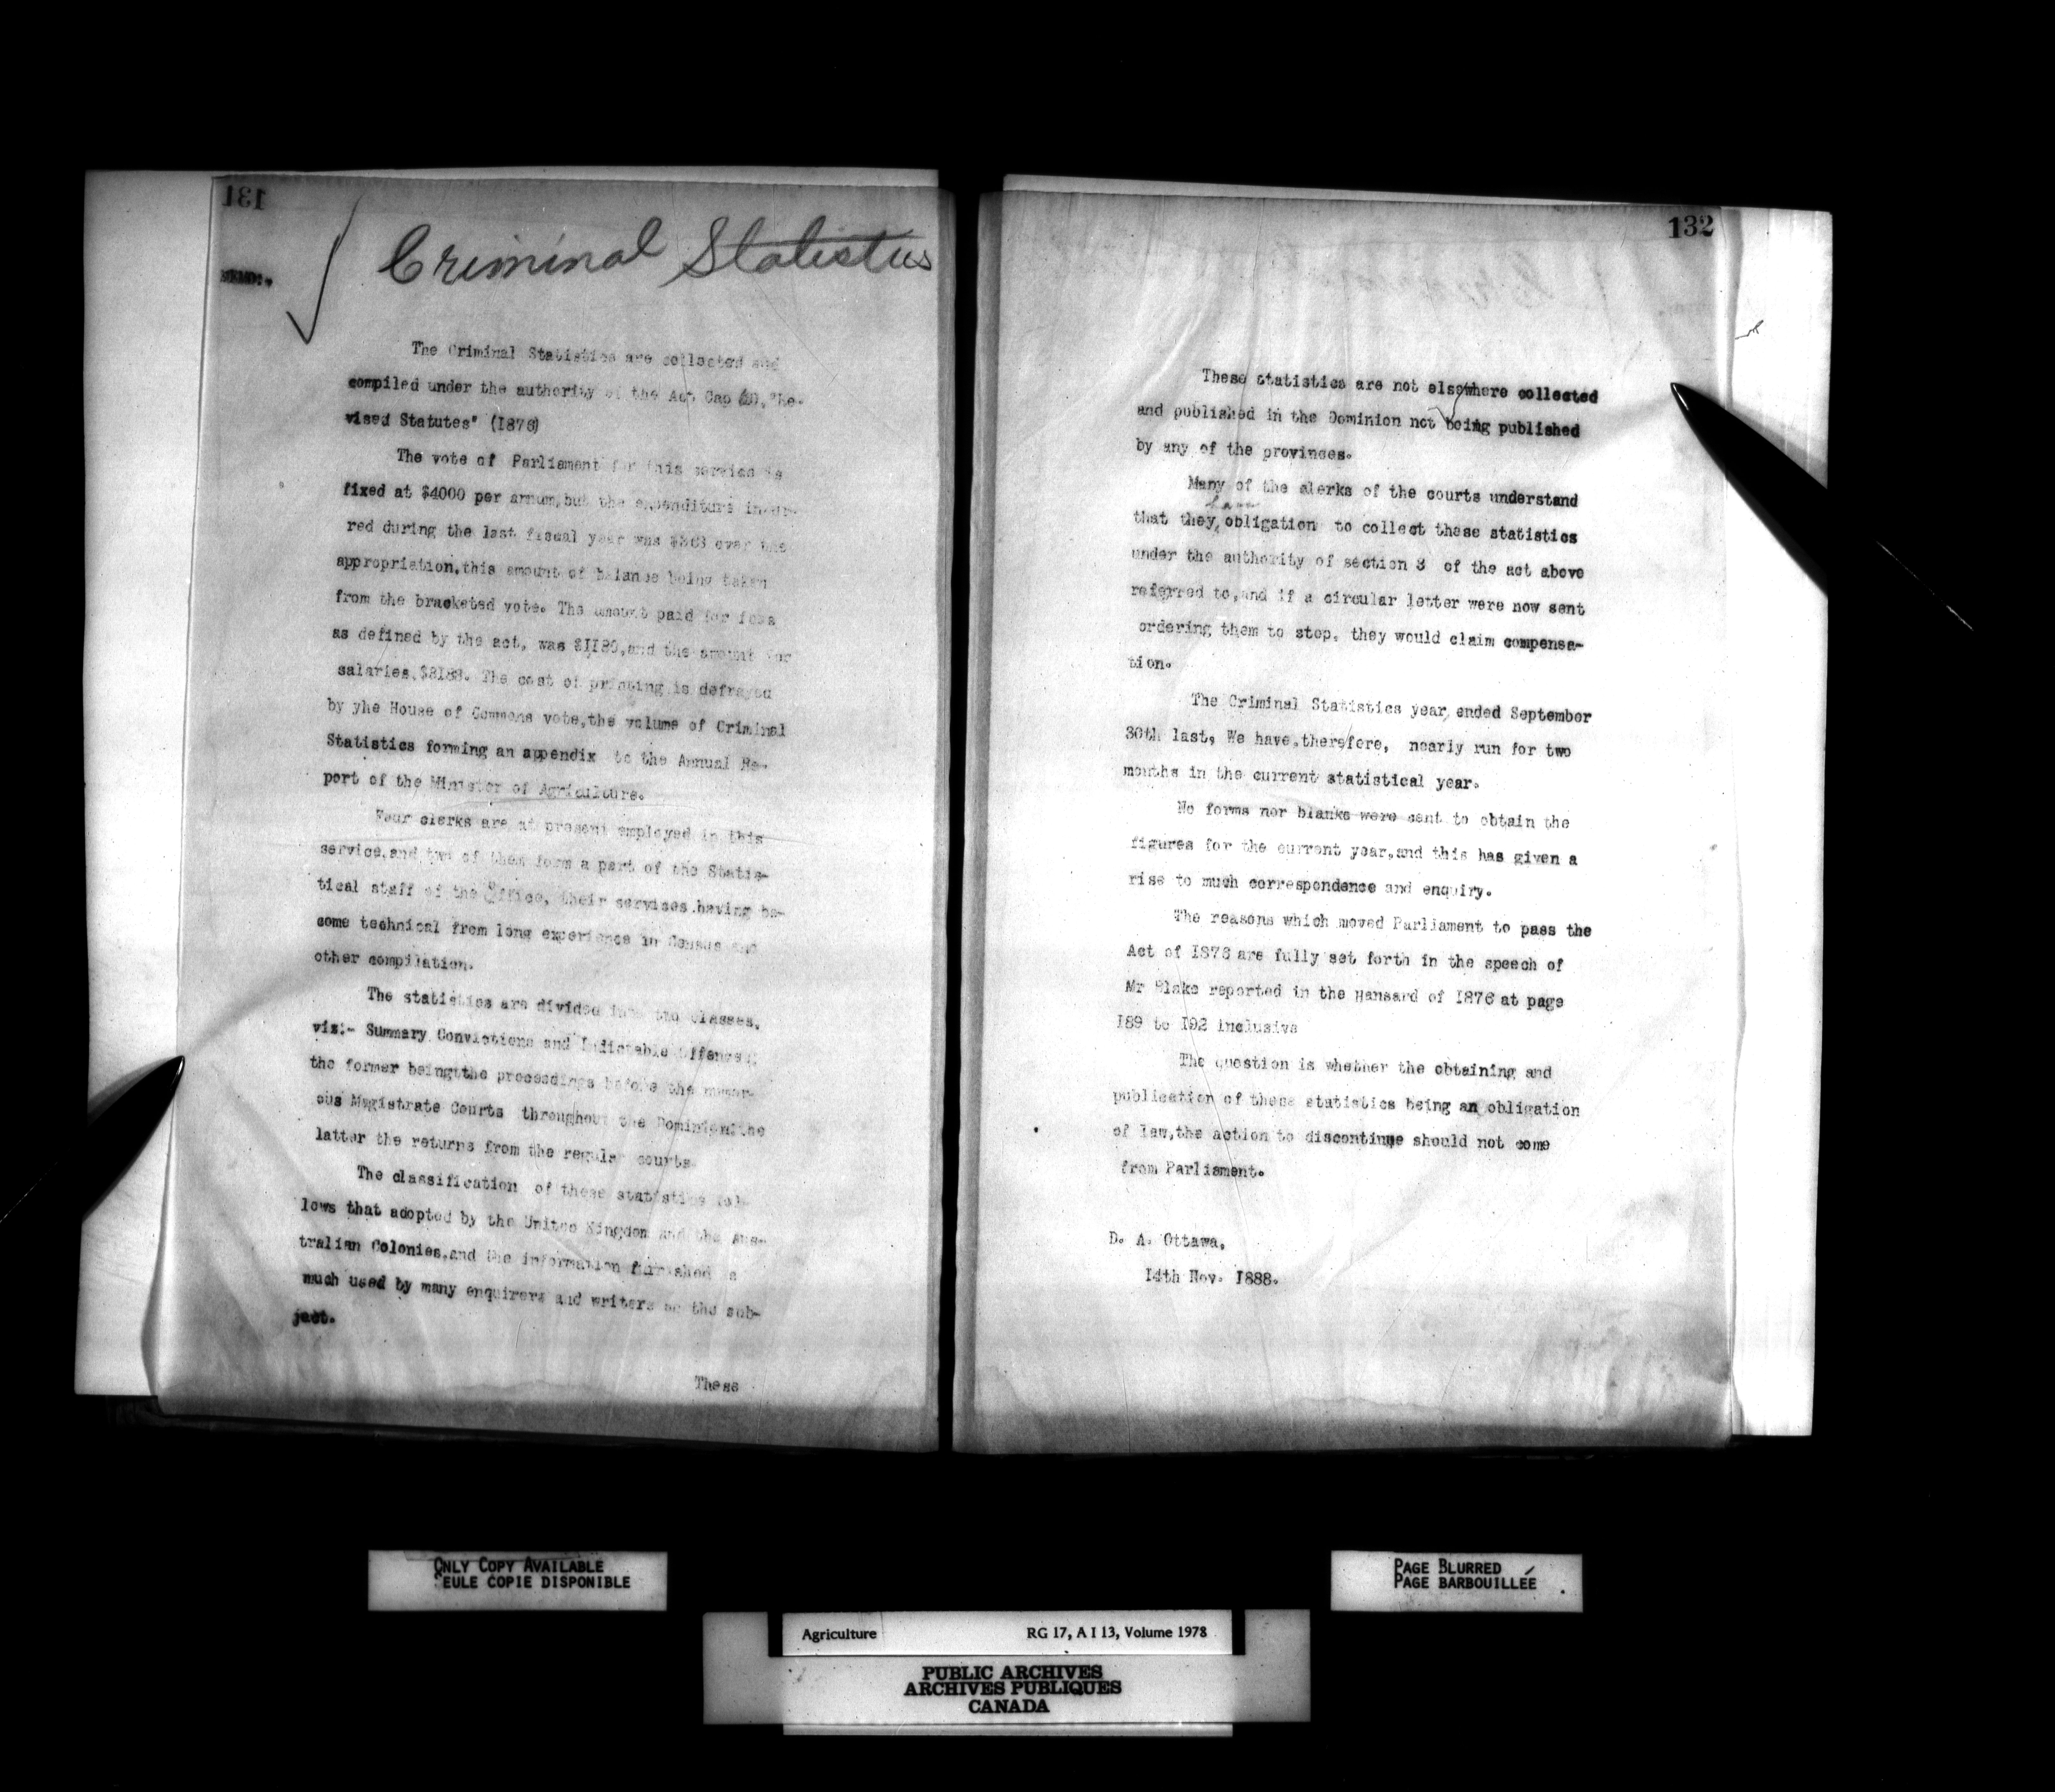 131
MEMO:.
Criminal Statistics
The Criminal Statistics are collected and
compiled under the authority of the Act Cap 60, "Re-
vised Statutes" (1876)
The vote of Parliament for this service is
fixed at $4000 per annum,but the expenditure incur-
red during the last fiscal year was over the
appropriation,this amount of balance being taken
from the bracketed vote. The amount paid for fees
as defined by the act, was and the amount for
salaries, The cost of printing is defrayed
by yhe House of Commons vote,the volume of Criminal
Statistics forming an appendix to the Annual Re-
port of the Minister of Agriculture.
Four clerks are at present employed in this
service,and two of them form a part of the Statis-
tical staff of the Office, their services having be-
come technical from long experience in Census and
other compilation.
The statistics are divided into two classes,
viz:- Summary Convictions and Indictable Offenses;
the former being the proceedings before the numer-
ous Magistrate Courts throughout the Dominion:the
latter the returns from the regular courts
The classification of these statistics fol-
lows that adopted by the United Kingdom and the Aus-
tralian Colonies,and the information furnished is
much used by many enquirers and writers on the sub-
ject.
These
132
These statistics are not elsewhere collected
and published in the Dominion not being published
by any of the provinces.
Many of the clerks of the courts understand
have
that they obligation to collect these statistics
under the authority of section 3 of the act above
referred to,and if a circular letter were now sent
ordering them to stop, they would claim compensa-
tion.
The Criminal Statistics year ended September
30th last, We have,therefore, nearly run for two
months in the current statistical year.
No forms nor blanks were sent to obtain the
figures for the current year,and this has given a
rise to much correspondence and enquiry.
The reasons which moved Parliament to pass the
Act of 1876 are fully set forth in the speech of
Mr Blake reported in the Hansard of 1876 at page
189 to 192 inclusive
The question is whether the obtaining and
publication of these statistics being an obligation
of law,the action to discontinue should not come
from Parliament.
D. A. Ottawa,
14th Nov. 1888.
ONLY COPY AVAILABLE
SEULE COPIE DISPONIBLE
PAGE BLURRED
PAGE BARBOUILLÉE
Agriculture RG 17, A I 13, Volume 1978
PUBLIC ARCHIVES
ARCHIVES PUBLIQUES
CANADA